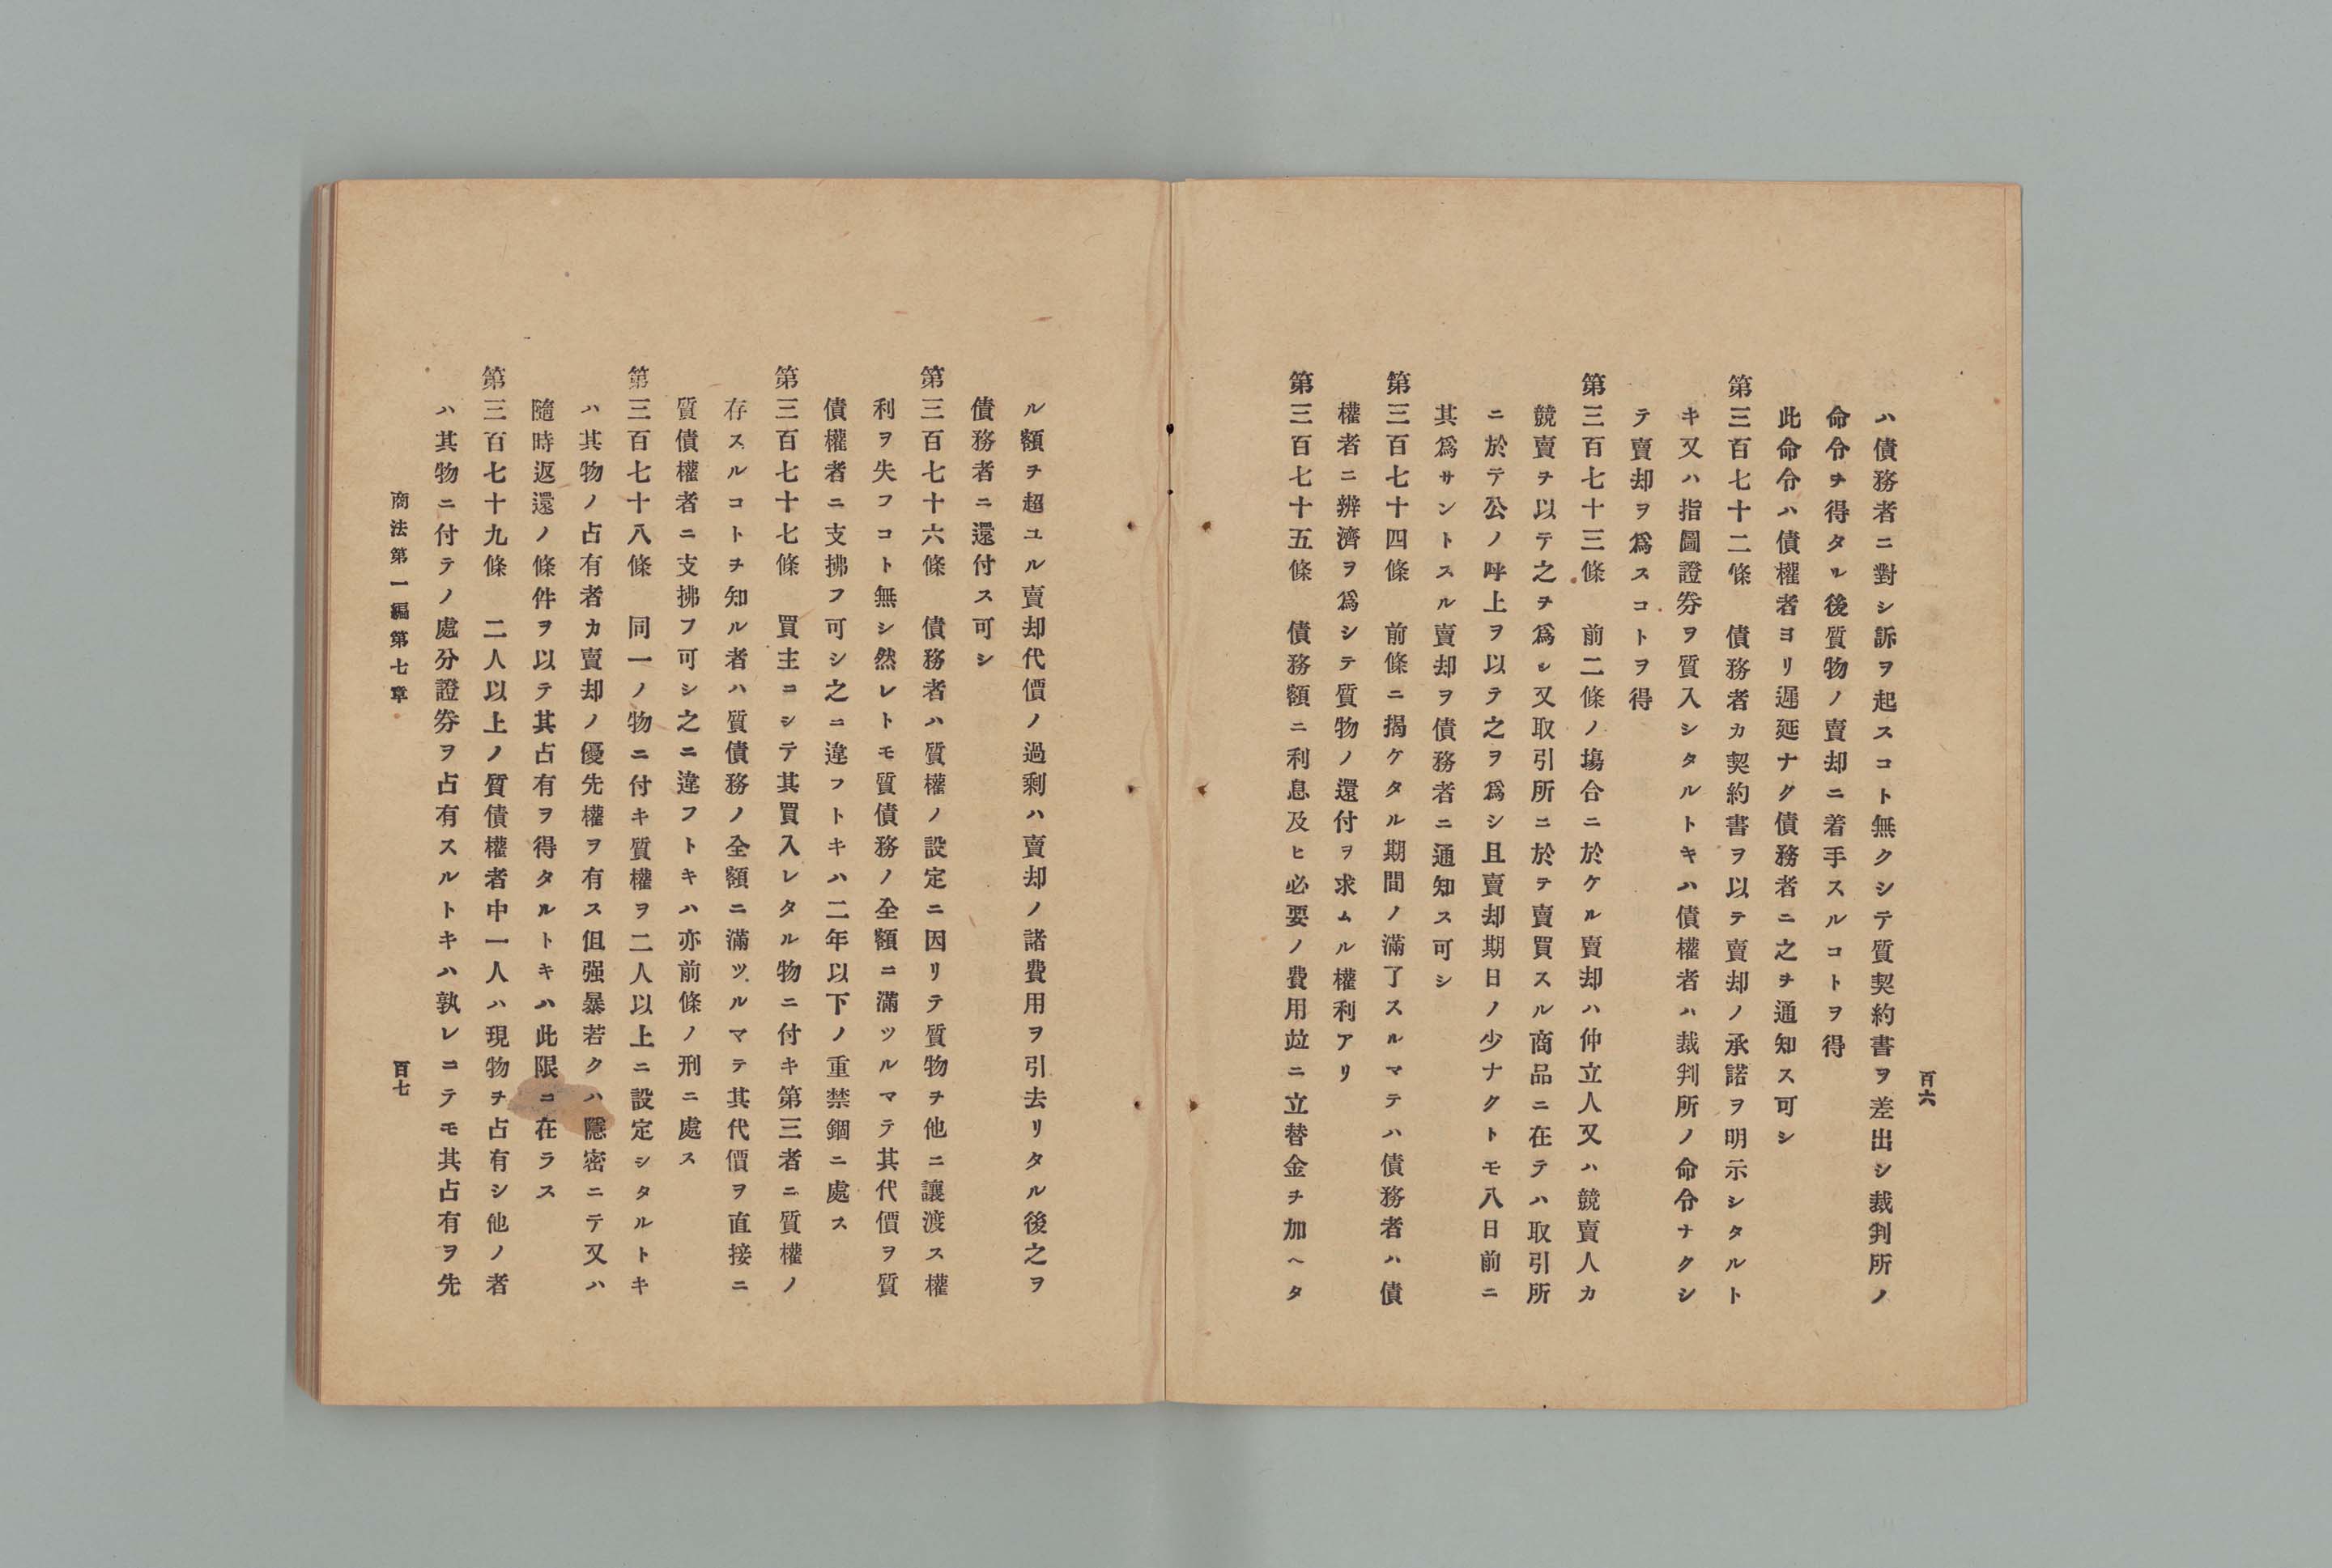 百六
ハ債務者ニ對シ訴ヲ起スコト無クシテ質契約書ヲ差出シ裁判所ノ
命令ヲ得タル後質物ノ賣却ニ着手スルコトヲ得
此命令ハ債權者ヨリ遲延ナク債務者ニ之ヲ通知ス可シ
第三百七十二條　債務者カ契約書ヲ以テ賣却ノ承諾ヲ明示シタルト
キ又ハ指圖證券ヲ質入シタルトキハ債權者ハ裁判所ノ命令ナクシ
テ賣却ヲ爲スコトヲ得
第三百七十三條　前二條ノ塲合ニ於ケル賣却ハ仲立人又ハ競賣人カ
競賣ヲ以テ之ヲ爲シ又取引所ニ於テ賣買スル商品ニ在テハ取引所
ニ於テ公ノ呼上ヲ以テ之ヲ爲シ且賣却期日ノ少ナクトモ八日前ニ
其爲サントスル賣却ヲ債務者ニ通知ス可シ
第三百七十四條　前條ニ揭ケタル期間ノ滿了スルマテハ債務者ハ債
權者ニ辨濟ヲ爲シテ質物ノ還付ヲ求ムル權利アリ
第三百七十五條　債務額ニ利息及ヒ必要ノ費用竝ニ立替金ヲ加ヘタ
ル額ヲ超ユル賣却代價ノ過剩ハ賣却ノ諸費用ヲ引去リタル後之ヲ
債務者ニ還付ス可シ
第三百七十六條　債務者ハ質權ノ設定ニ因リテ質物ヲ他ニ讓渡ス權
利ヲ失フコト無シ然レトモ質債務ノ全額ニ滿ツルマテ其代價ヲ質
債權者ニ支拂フ可シ之ニ違フトキハ二年以下ノ重禁錮ニ處ス
第三百七十七條　買主コシテ其買入レタル物ニ付キ第三者ニ質權ノ
存スルコトヲ知ル者ハ質債務ノ全額ニ滿ツルマテ其代價ヲ直接ニ
質債權者ニ支拂フ可シ之ニ違フトキハ亦前條ノ刑ニ處ス
第三百七十八條　同一ノ物ニ付キ質權ヲ二人以上ニ設定シタルトキ
ハ其物ノ占有者カ賣却ノ優先權ヲ有ス但强暴若クハ隱密ニテ又ハ
隨時返還ノ條件ヲ以テ其占有ヲ得タルトキハ此限ニ在ラス
第三百七十九條　二人以上ノ質債權者中一人ハ現物ヲ占有シ他ノ者
ハ其物ニ付テノ處分證券ヲ占有スルトキハ孰レニテモ其占有ヲ先
商法第一編第七章
百七